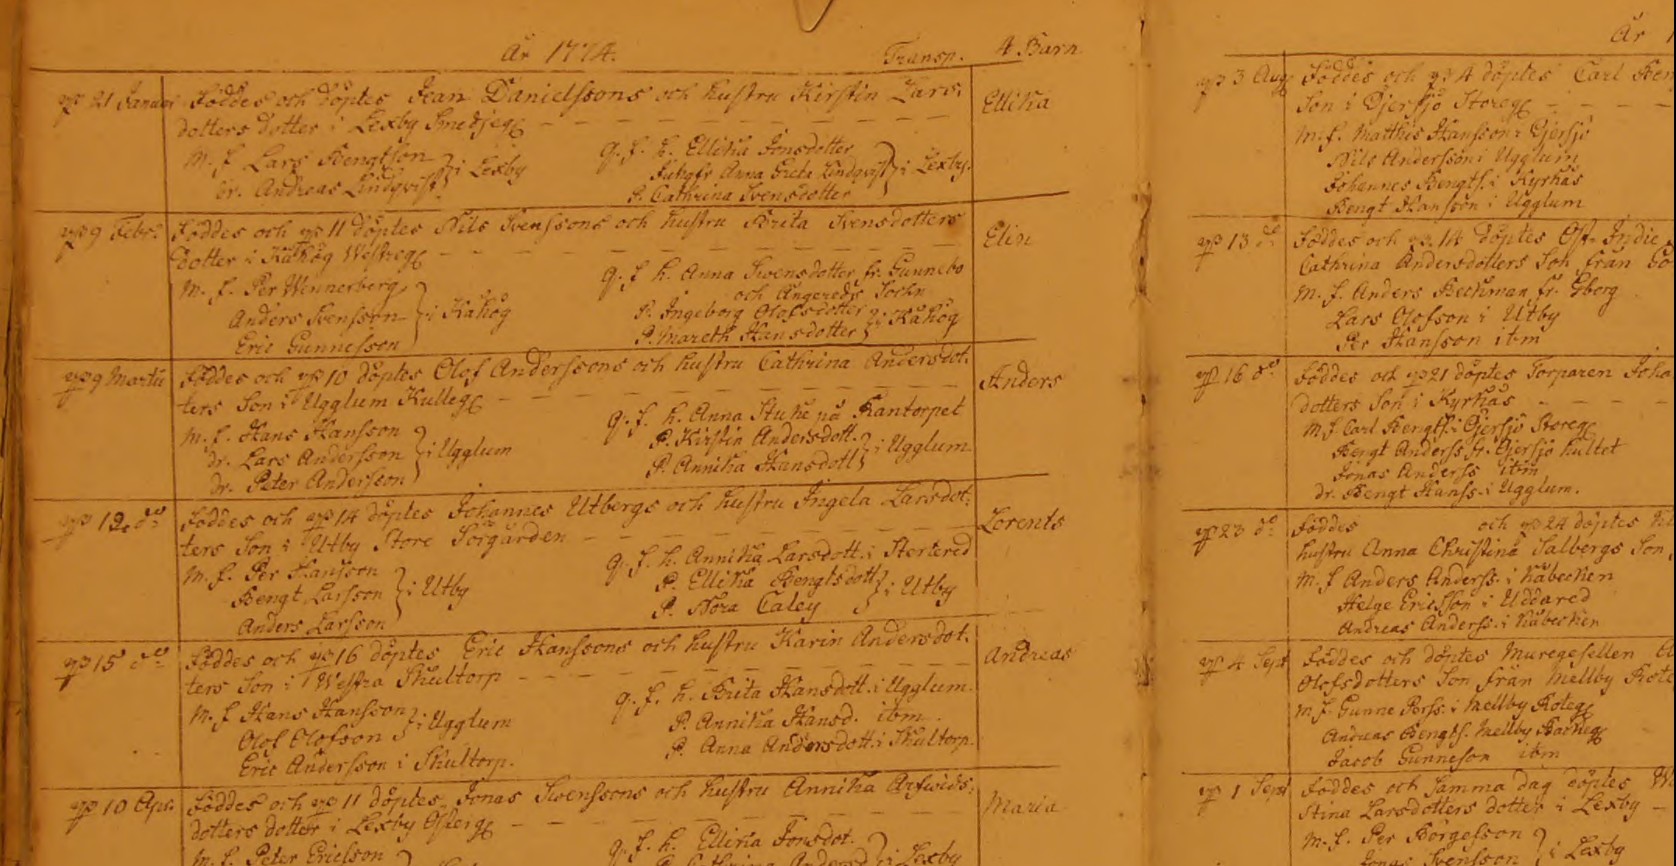 År 1774.
Transp. 4 Barn
d. 21 Januar Föddes och döptes Jean Danielssons och hustru Kirstin Lars
dotters dotter i Lexby Smedjeg
Ellika
M. f. Lars Bengtson
dr. Andreas Lindqvist
i Lexby
Q. f. h. Ellika Jonsdotter
Jukgfr Anna Greta Lindqvist
P. Cathrina Svensdotter
i Lexby.
d. 9 Febr. Föddes och d. 11 döptes Nils Svenssons och hustru Brita Svensdotters
dotter i Kåhög Westreg
Elin
M. f. Per Wennerberg
Anders Svensson
Eric Gunnesson
i Kåhög
Q. f. h. Anna Swensdotter fr. Gunnebo
och Angereds Sochn
P. Ingeborg Olofsdotter
P. Mareth Hansdotter
i Kåhög
d. 9 Martii Föddes och d. 10 döptes Olof Anderssons och hustru Cathrina Andersdot:
ters Son i Ugglum Kulleg
Anders
M. f. Hans Hansson
dr. Lars Andersson
dr. Peter Andersson
i Ugglum
Q. f. h. Anna Stuke på Kantorpet
P. Kirstin Andersdott.
P. Annika Hansdott
i Ugglum
d. 12 do Föddes och d. 14 döptes Johannes Utbergs och hustru Ingela Larsdot:
ters Son i Utby Store Sörgården
Lorents
M. f. Per Hansson
Bengt Larsson
Anders Larsson
i Utby
Q. f. h. Annika Larsdott. i Stertered
P. Ellika Bengtsdott
P. Nora Caley
i Utby
d. 15 do Föddes och d. 16 döptes Eric Hanssons och hustru Karin Andersdot:
ters Son i Westra Skultorp
Andreas
M. f Hans Hansson
Olof Olofson
i Ugglum
Eric Andersson i Skultorp.
Q. f. h. Brita Hansdott. i Ugglum.
P. Annika Hansd. ibm.
P. Anna Andersdott. i Skultorp.
d. 10 Apr. Föddes och d. 11 döptes Jonas Swenssons och hustru Annika Arfwids:
dotters dotter i Lexby Österg
Maria
M. f. Peter Ericson
Q. f. h. Ellika Jonsdot.
i Lexby
År 1
d. 3 Aug Föddes och d. 4 döptes Carl Ben
Son i Gjersjö Storeg
M. f. Matthis Hansson i Gjersjö
Nils Andersson i Ugglum
Johannes Bengts. i Kyrkås
Bengt Hansson i Ugglum
d. 13 do Föddes och d. 14 döptes Ost-Indie
Cathrina Andersdotters Son från Gö
M. f. Anders Beckman fr. Gborg
Lars Olofson i Utby
Per Hansson ibm
d. 16 do Föddes och d. 21 döptes Torparen Joha
dotters Son i Kyrkås
M. f. Carl Bengts. i Gjersjö Storeg
Bengt Anderss fr. Gjersjö hultet
Jonas Anderss ibm
dr. Bengt Hanss. i Ugglum.
d. 23 do Föddes och d. 24 döptes
hustru Anna Christina Salbergs Son
M. f Anders Anderss. i Kåbecken
Helge Ericsson i Uddared
Andreas Anderss. i Kåbecken
d. 4 Sept Föddes och döptes Muregesellen
Olofsdotters Son från Mellby
M. f. Gunne Perss. i Mellby
Andreas Bengts. Mellby Backeg
Jacob Gunneson ibm
d. 1 Sept Föddes och samma dag döptes
Stina Larsdotters dotter i Lexby
M. f. Per Borgesson
Jonas Svensson
i Lexby